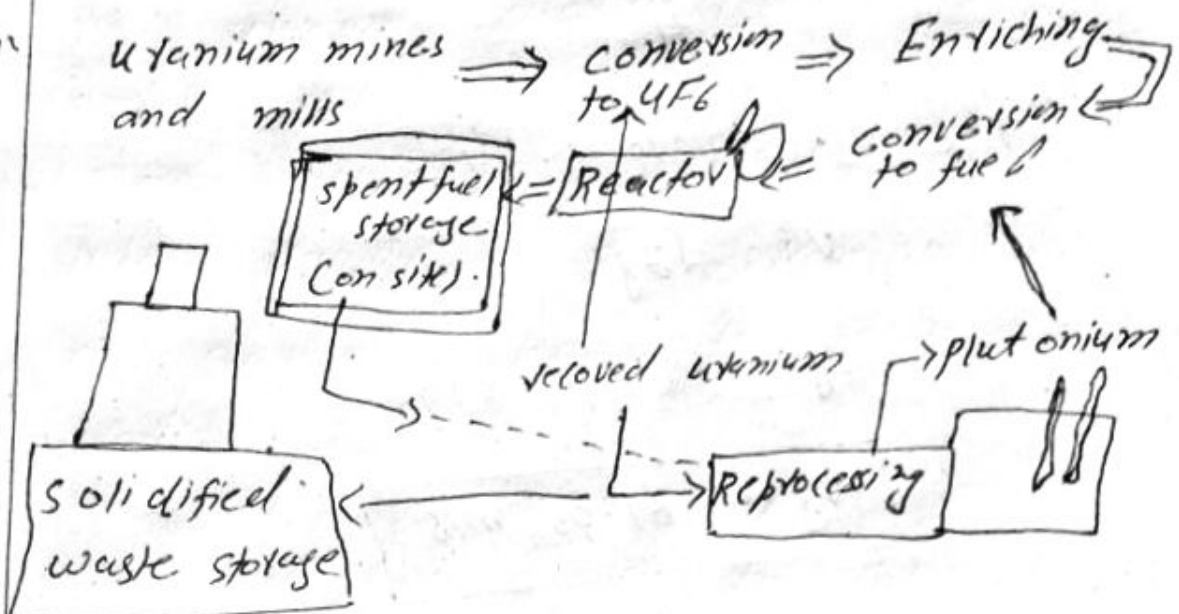 uranium mines
and mills
conversion
to UF6
Enriching
conversion
to fuel
Reactor
spent fuel
storage
(on site).
reloved uranium
plutonium
Reprocessing
Solidified
waste storage